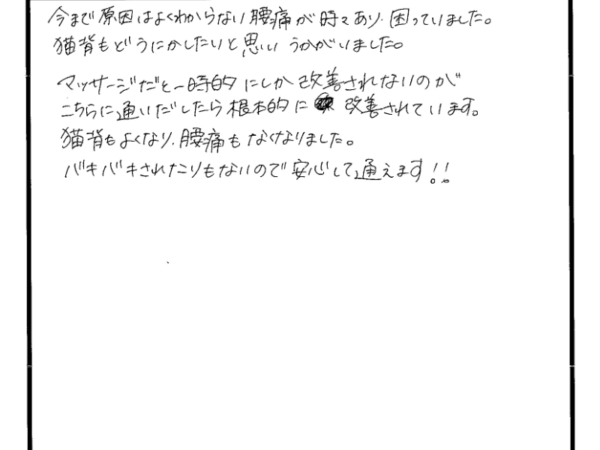 今まで原因はよくわからない腰痛が時々あり、困っていました。
猫背もどうにかしたいと思いうかがいました。
マッサージだと一時的にしか改善されないのが
こちらに通いだしたら根本的に改善されています。
猫背もよくなり、腰痛もなくなりました。
バキバキされたりもないので安心して通えます!!